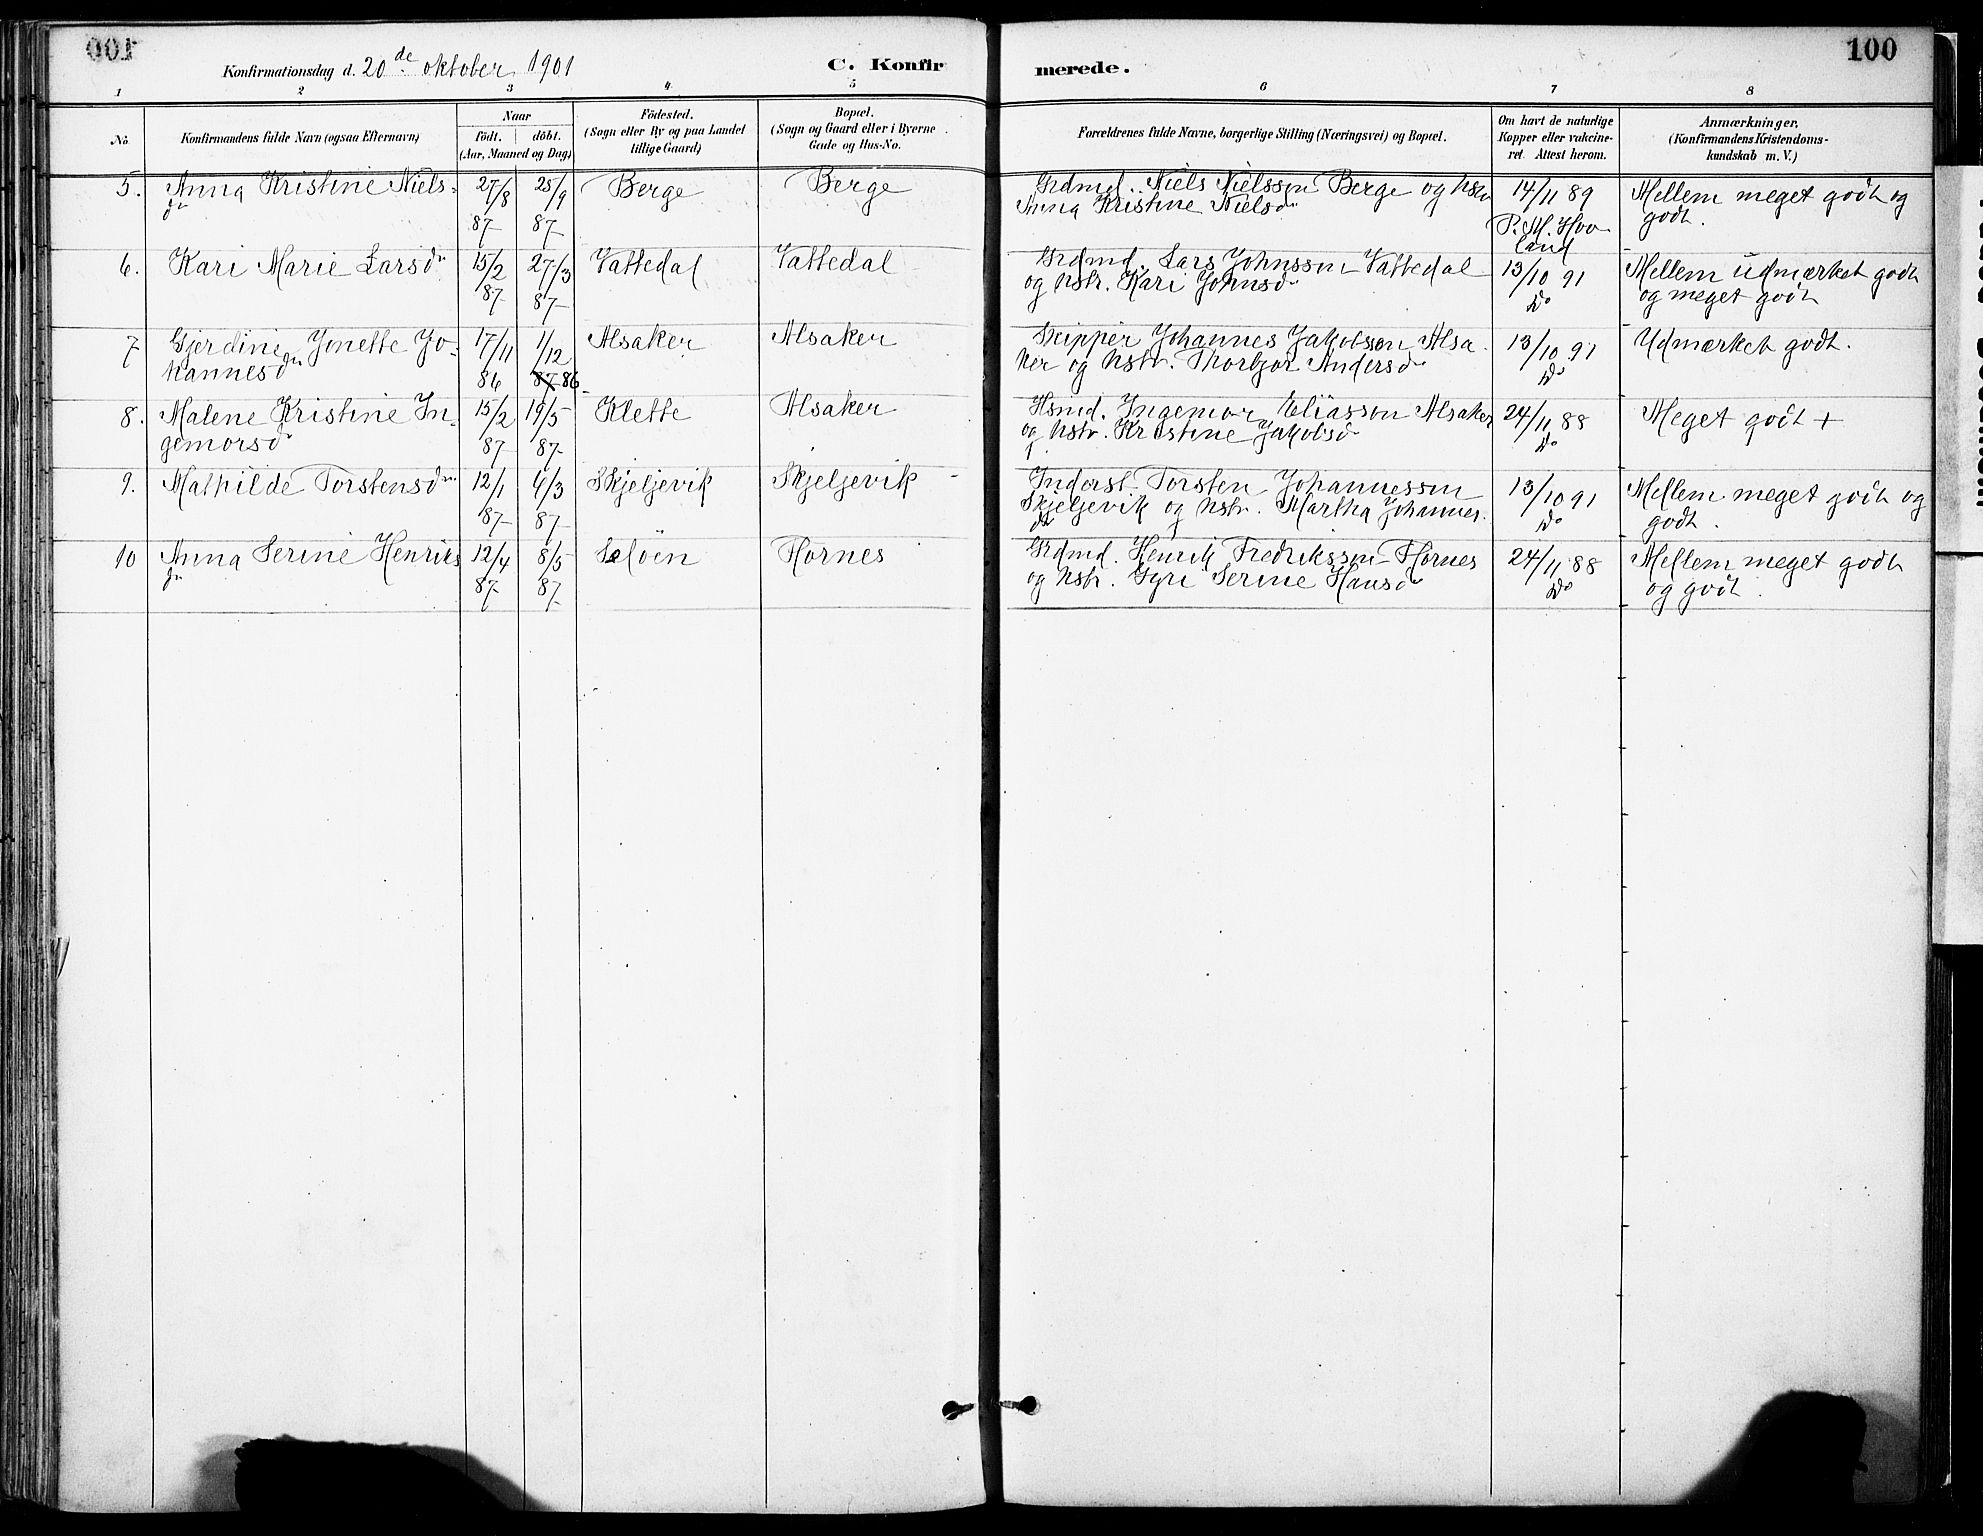 100
Konfirmationsdag d. 20de oktober 1901
C. Konfirmerede.
100
1 2 3 4 5 6 7 8
No.
Konfirmandens fulde Navn (ogsaa Efternavn)
Naar
födt. döbt.
(Aar, Maaned og Dag)
Födested.
(Sogn eller By og paa Landet
tillige Gaard)
Bopæl.
(Sogn og Gaard eller i Byerne
Gade og Hus-No.
Forældrenes fulde Navne, borgerlige Stilling (Næringsvei) og Bopæl.
Om havt de naturlige
Kopper eller vakcine-
ret. Attest herom.
Anmærkninger,
(Konfirmandens Kristendoms-
kundskab m. V.)
5. Anna Kristine Niels- 27/8 25/9 Berge Berge Grdmd. Niels Nielsson Berge og hstr 14/11 89 Mellem meget godt og
dr 87 87 Anna Kristine Nielsdr P. M. Hov- godt.
land
6. Kari Marie Larsdr 15/2 27/3 Vattedal Vattedal Grdmd. Lars Johnsson Vattedal 13/10 91 Mellem udmærket godt
87 87 og hstr. Kari Johnsdr Do og meget godt
7 Gjerdine Jonette Jo- 17/11 1/12 Alsaker Alsaker Skipper Johannes Jakobson Alsa- 13/10 91 Udmærket godt.
hannesdr 86 87 86 ker og hstr. Thorbjor Andersdr Do
8. Malene Kristine In- 15/2 19/5 Klette Alsaker Hsmd. Ingemor Eliasson Alsaker 24/11 88 Meget godt +
gemorsdr 87 87 og hstr. Kristine Jakobsdr Do
9. Mathilde Torstensdr 12/1 6/3 Skjeljevik Skjeljevik Inderst Torsten Johannesson 13/10 91 Mellem meget godt og
87 87 Skjeljevik og hstr. Martha Johannes- Do godt.
dr
10 Anna Serine Henriks 12/4 8/5 Seløen Hornes Grdmd. Henrik Fredriksson Hornes 24/11 88 Mellem meget godt
dr 87 87 og hstr. Gyri Serine Hansdr Do og godt.